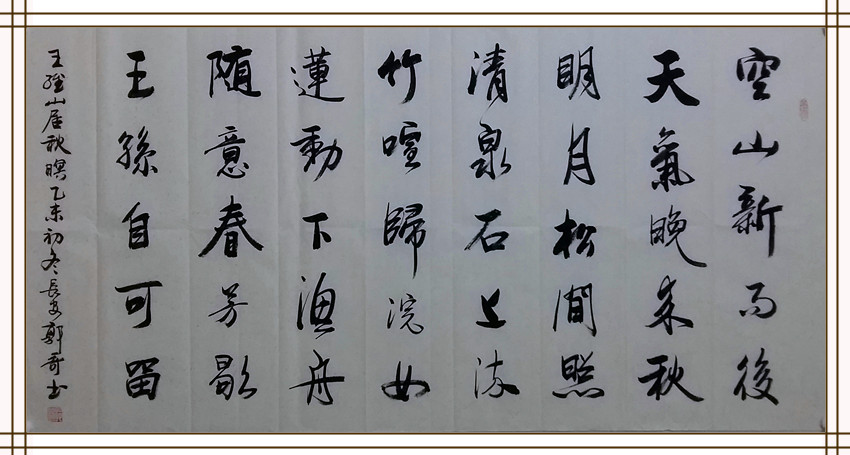 空山新雨後
天氣晚来秋
明月松間照
清泉石上流
竹喧歸浣女
蓮動下漁舟
随意春芳歇
王孫自可留
王維山居秋暝乙未初冬長安郭哥书